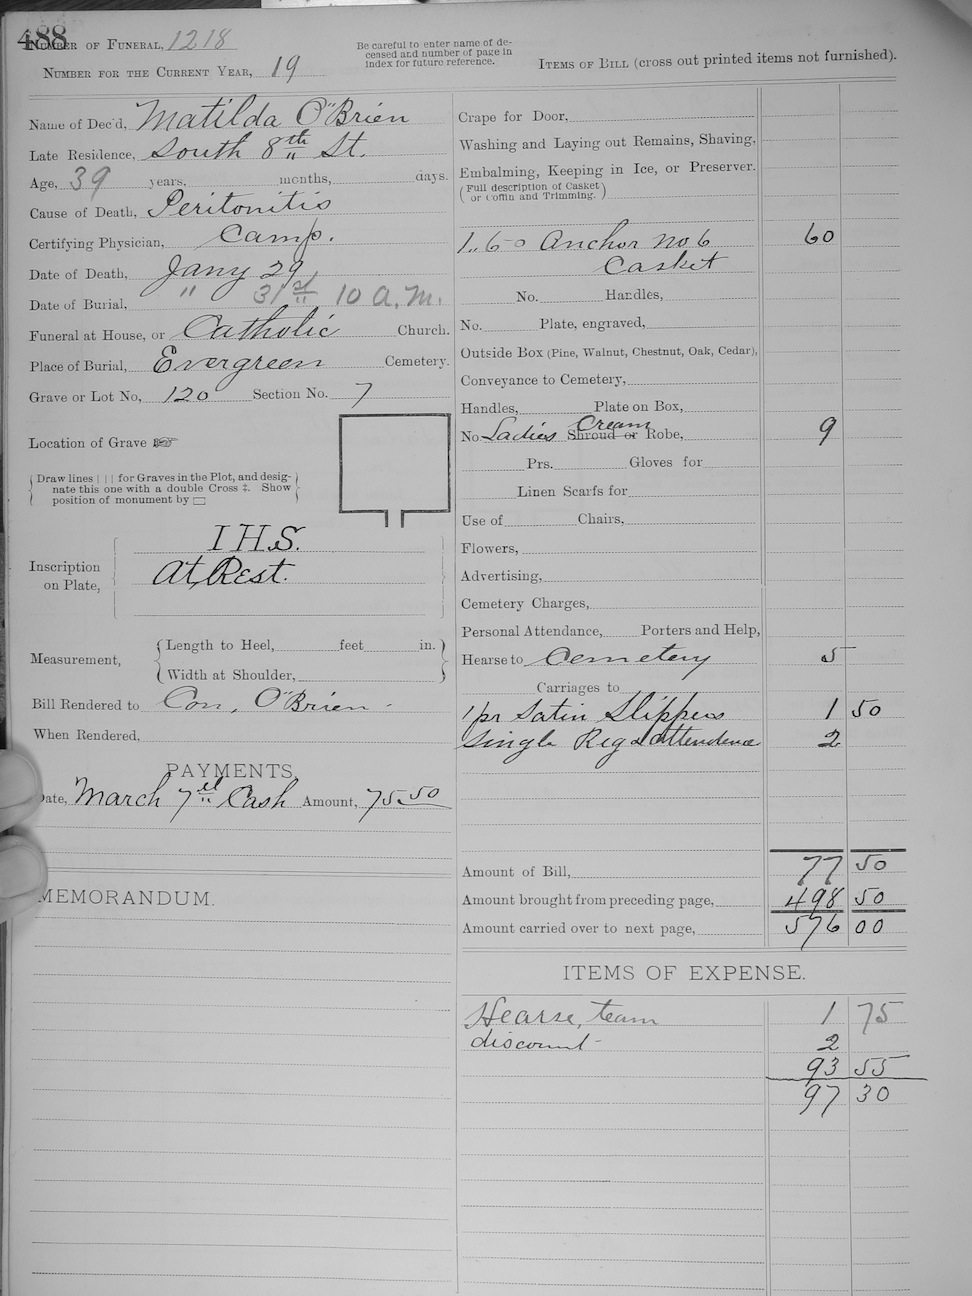 488
Number of Funeral, 1218
Number for the Current Year, 19
Be careful to enter name of de-
ceased and number of page in
index for future reference.
Items of Bill (cross out printed items not furnished).
Name of Dec'd, Matilda O'Brien
Late Residence, South 8th St.
Age, 39 years, months, days.
Cause of Death, Peritonitis
Certifying Physician, Camp.
Date of Death, Jany 29
Date of Burial, " 31st 10 A.M.
Funeral at House, or Catholic Church.
Place of Burial, Evergreen Cemetery.
Grave or Lot No, 120 Section No. 7
Location of Grave ☞
Draw lines | | | for Graves in the Plot, and desig-
nate this one with a double Cross ‡. Show
position of monument by ▭
Inscription
on Plate,
I H.S.
At Rest.
Measurement,
Length to Heel, feet in.
Width at Shoulder,
Bill Rendered to Con, O'Brien -
When Rendered,
PAYMENTS
Date, March 7th Cash Amount, 75.50
MEMORANDUM.
Crape for Door,
Washing and Laying out Remains, Shaving,
Embalming, Keeping in Ice, or Preserver.
(Full description of Casket
or Coffin and Trimming.)
1,, 6-0 Anchor No 6 60
Casket
No. Handles,
No. Plate, engraved,
Outside Box (Pine, Walnut, Chestnut, Oak, Cedar),
Conveyance to Cemetery,
Handles, Plate on Box,
No Ladies Cream Shroud or Robe, 9
Prs. Gloves for
Linen Scarfs for
Use of Chairs,
Flowers,
Advertising,
Cemetery Charges,
Personal Attendance, Porters and Help,
Hearse to Cemetery 5
Carriages to
1 pr Satin Slippers 1 50
Single Rig & attendence 2
Amount of Bill, 77 50
Amount brought from preceding page, 498 50
Amount carried over to next page, 576 00
ITEMS OF EXPENSE.
Hearse, team 1 75
discount - 2
93 55
97 30